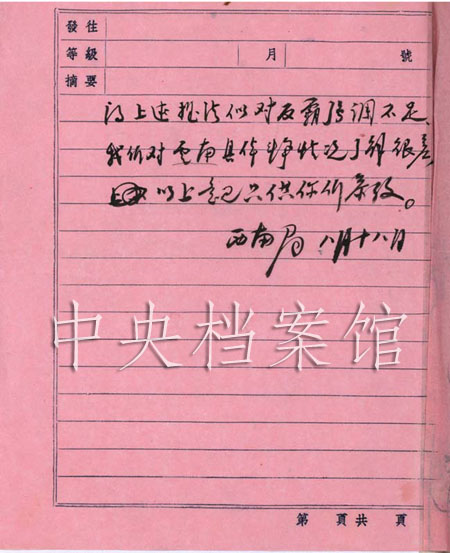 發往
等級 月 號
摘要
上述提法似对反霸强调不足
我们对雲南具体情况了解很差
以上意见只供你们参考。
西南局 八月十八日
中央档案馆
第 頁共 頁